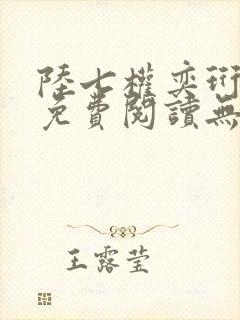 陸七權奕珩
免費閱讀無
王露莹